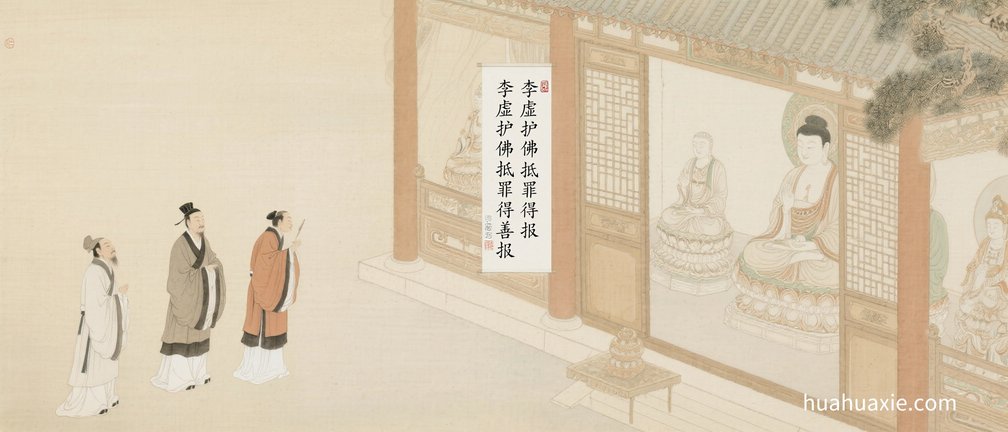 李虚护佛抵罪得报
李虚护佛抵罪得善报
huahuaxie.com